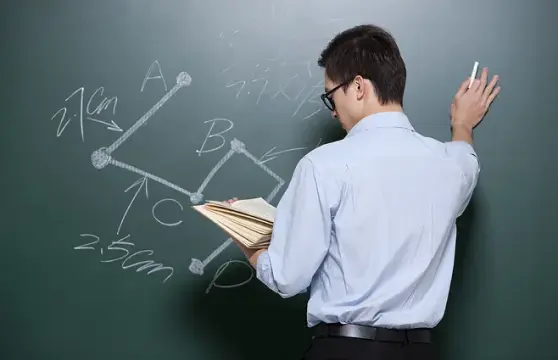 A
2.1 cm
B
C
2.5cm
D